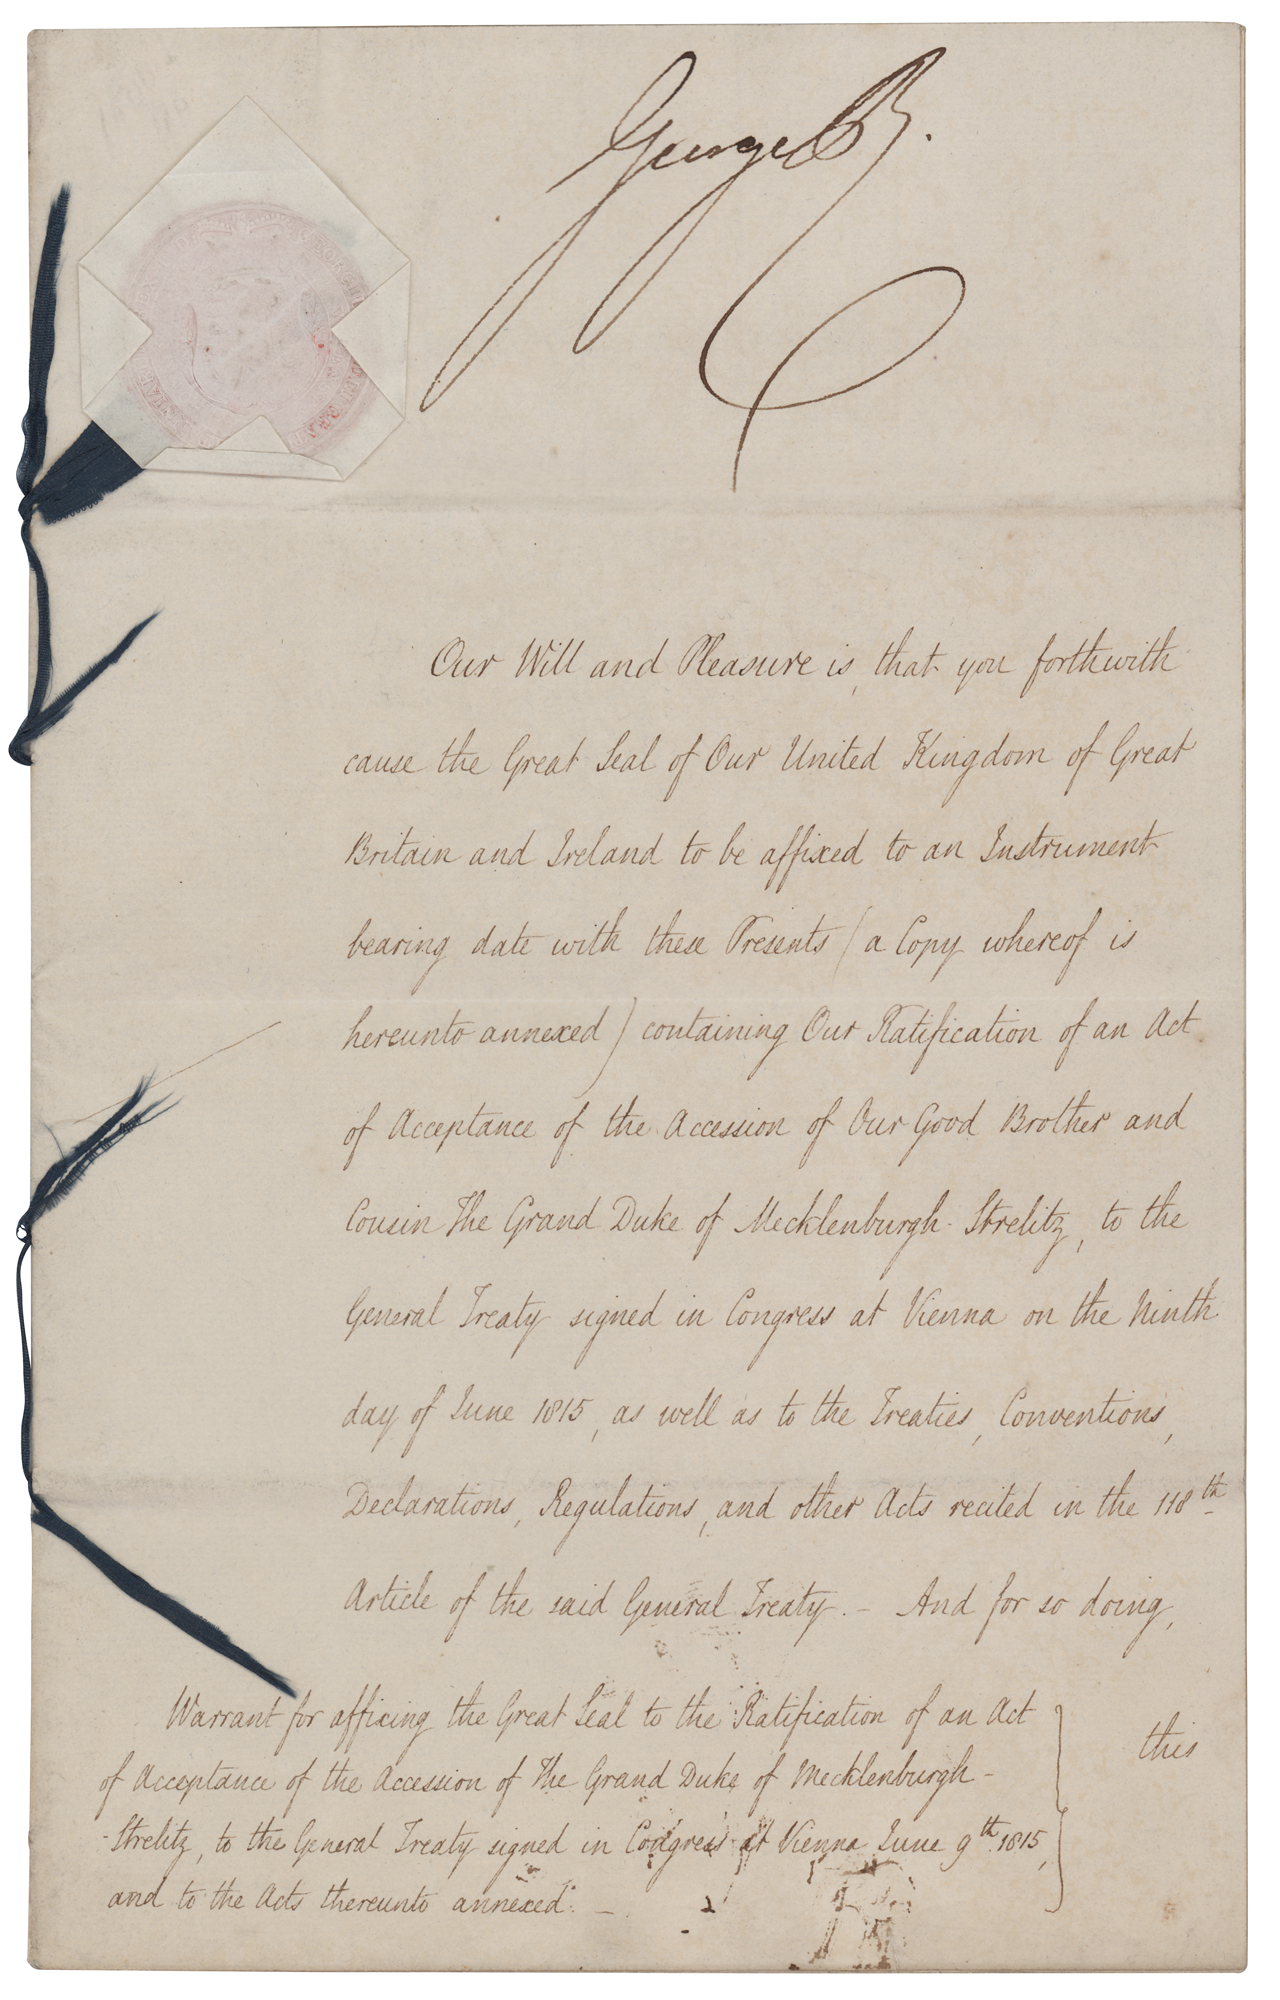 George R.
Our Will and Pleasure is, that you forthwith
cause the Great Seal of Our United Kingdom of Great
Britain and Ireland to be affixed to an Instrument
bearing date with these Presents (a Copy whereof is
hereunto annexed) containing Our Ratification of an Act
of Acceptance of the Accession of Our Good Brother and
Cousin The Grand Duke of Mecklenburgh-Strelitz, to the
General Treaty signed in Congress at Vienna on the Ninth
day of June 1815, as well as to the Treaties, Conventions,
Declarations, Regulations, and other Acts recited in the 118th
Article of the said General Treaty. – And for so doing,
this
Warrant for affixing the Great Seal to the Ratification of an Act
of Acceptance of the Accession of The Grand Duke of Mecklenburgh-
-Strelitz, to the General Treaty signed in Congress at Vienna June 9th 1815,
and to the Acts thereunto annexed. –